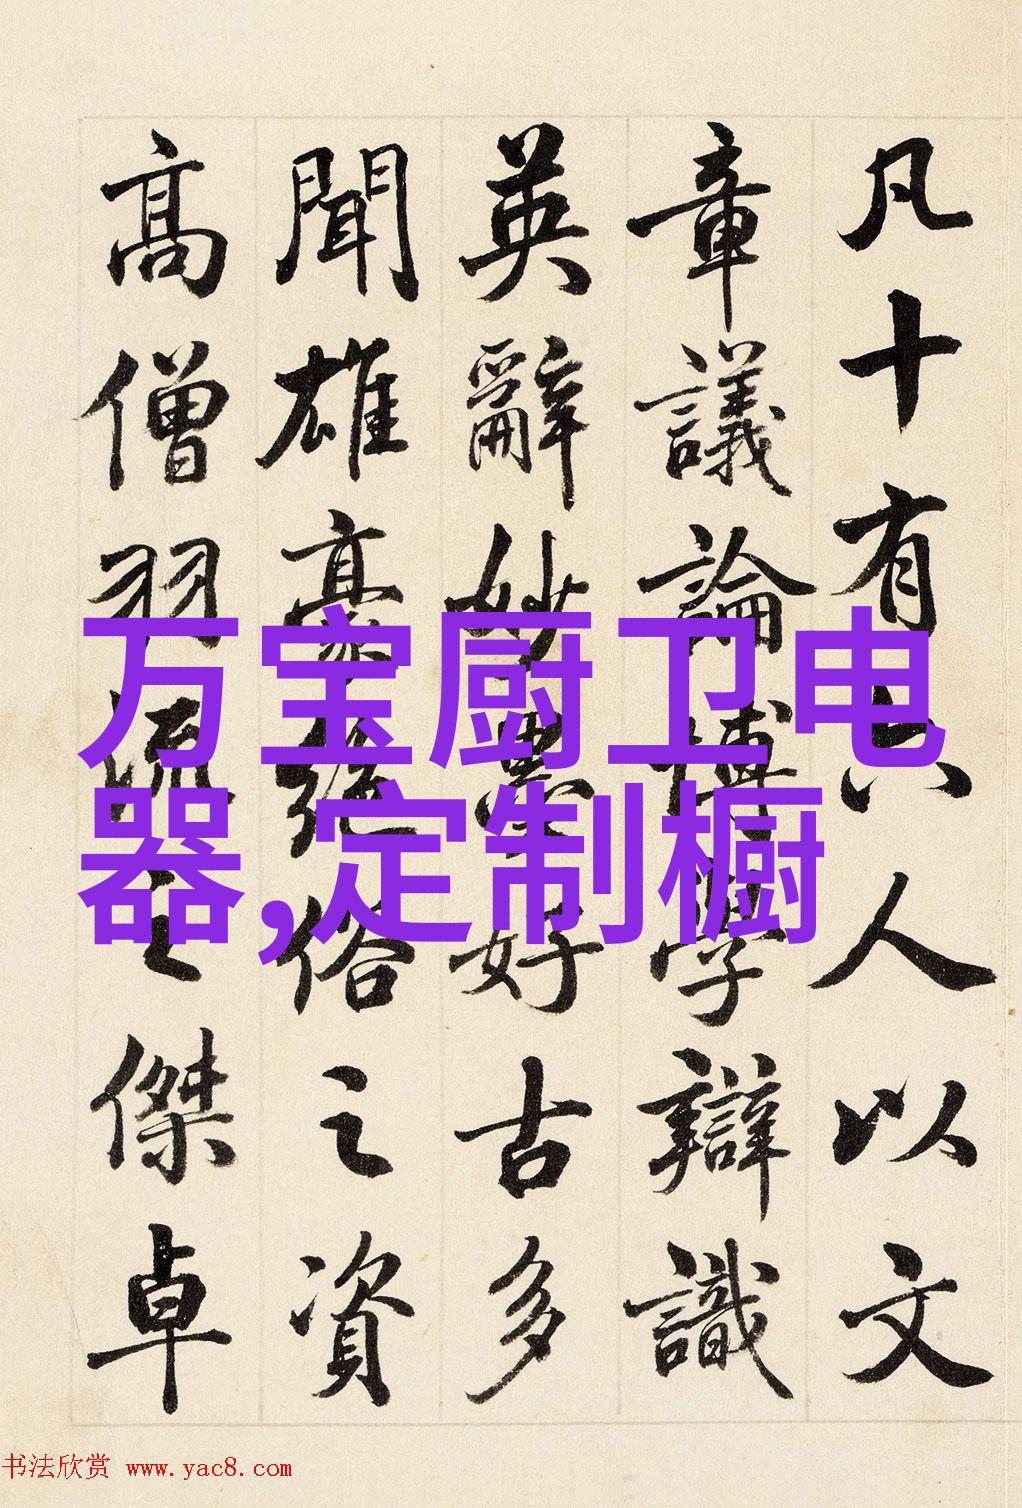 凡十有六人以文
章議論博學辯識
英辭妙墨好古多
聞雄豪絕俗之資
高僧羽流之傑卓
万宝厨卫电
器,定制橱
书法欣赏 www.yac8.com